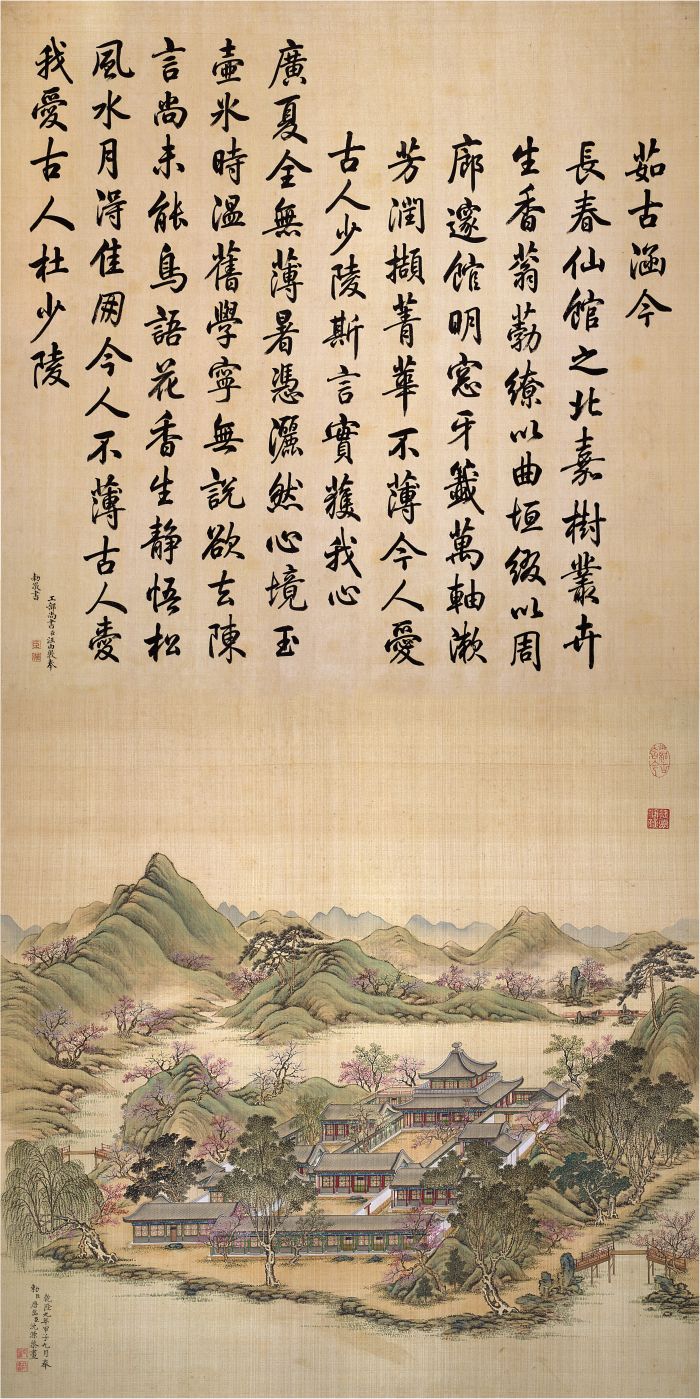 茹古涵今
長春仙館之北嘉樹叢卉
生香蓊葧繚以曲垣綴以周
廊邃館明窓牙籤萬軸漱
芳潤擷菁華不薄今人愛
古人少陵斯言實獲我心
廣夏全無薄暑憑灑然心境玉
壺氷時溫舊學寧無說欲去陳
言尚未能鳥語花香生靜悟松
風水月淂佳朋今人不薄古人愛
我愛古人杜少陵
工部尚書臣汪由敦奉
勅敬書
乾隆九年甲子九月奉
勅臣唐岱臣沈源恭畫